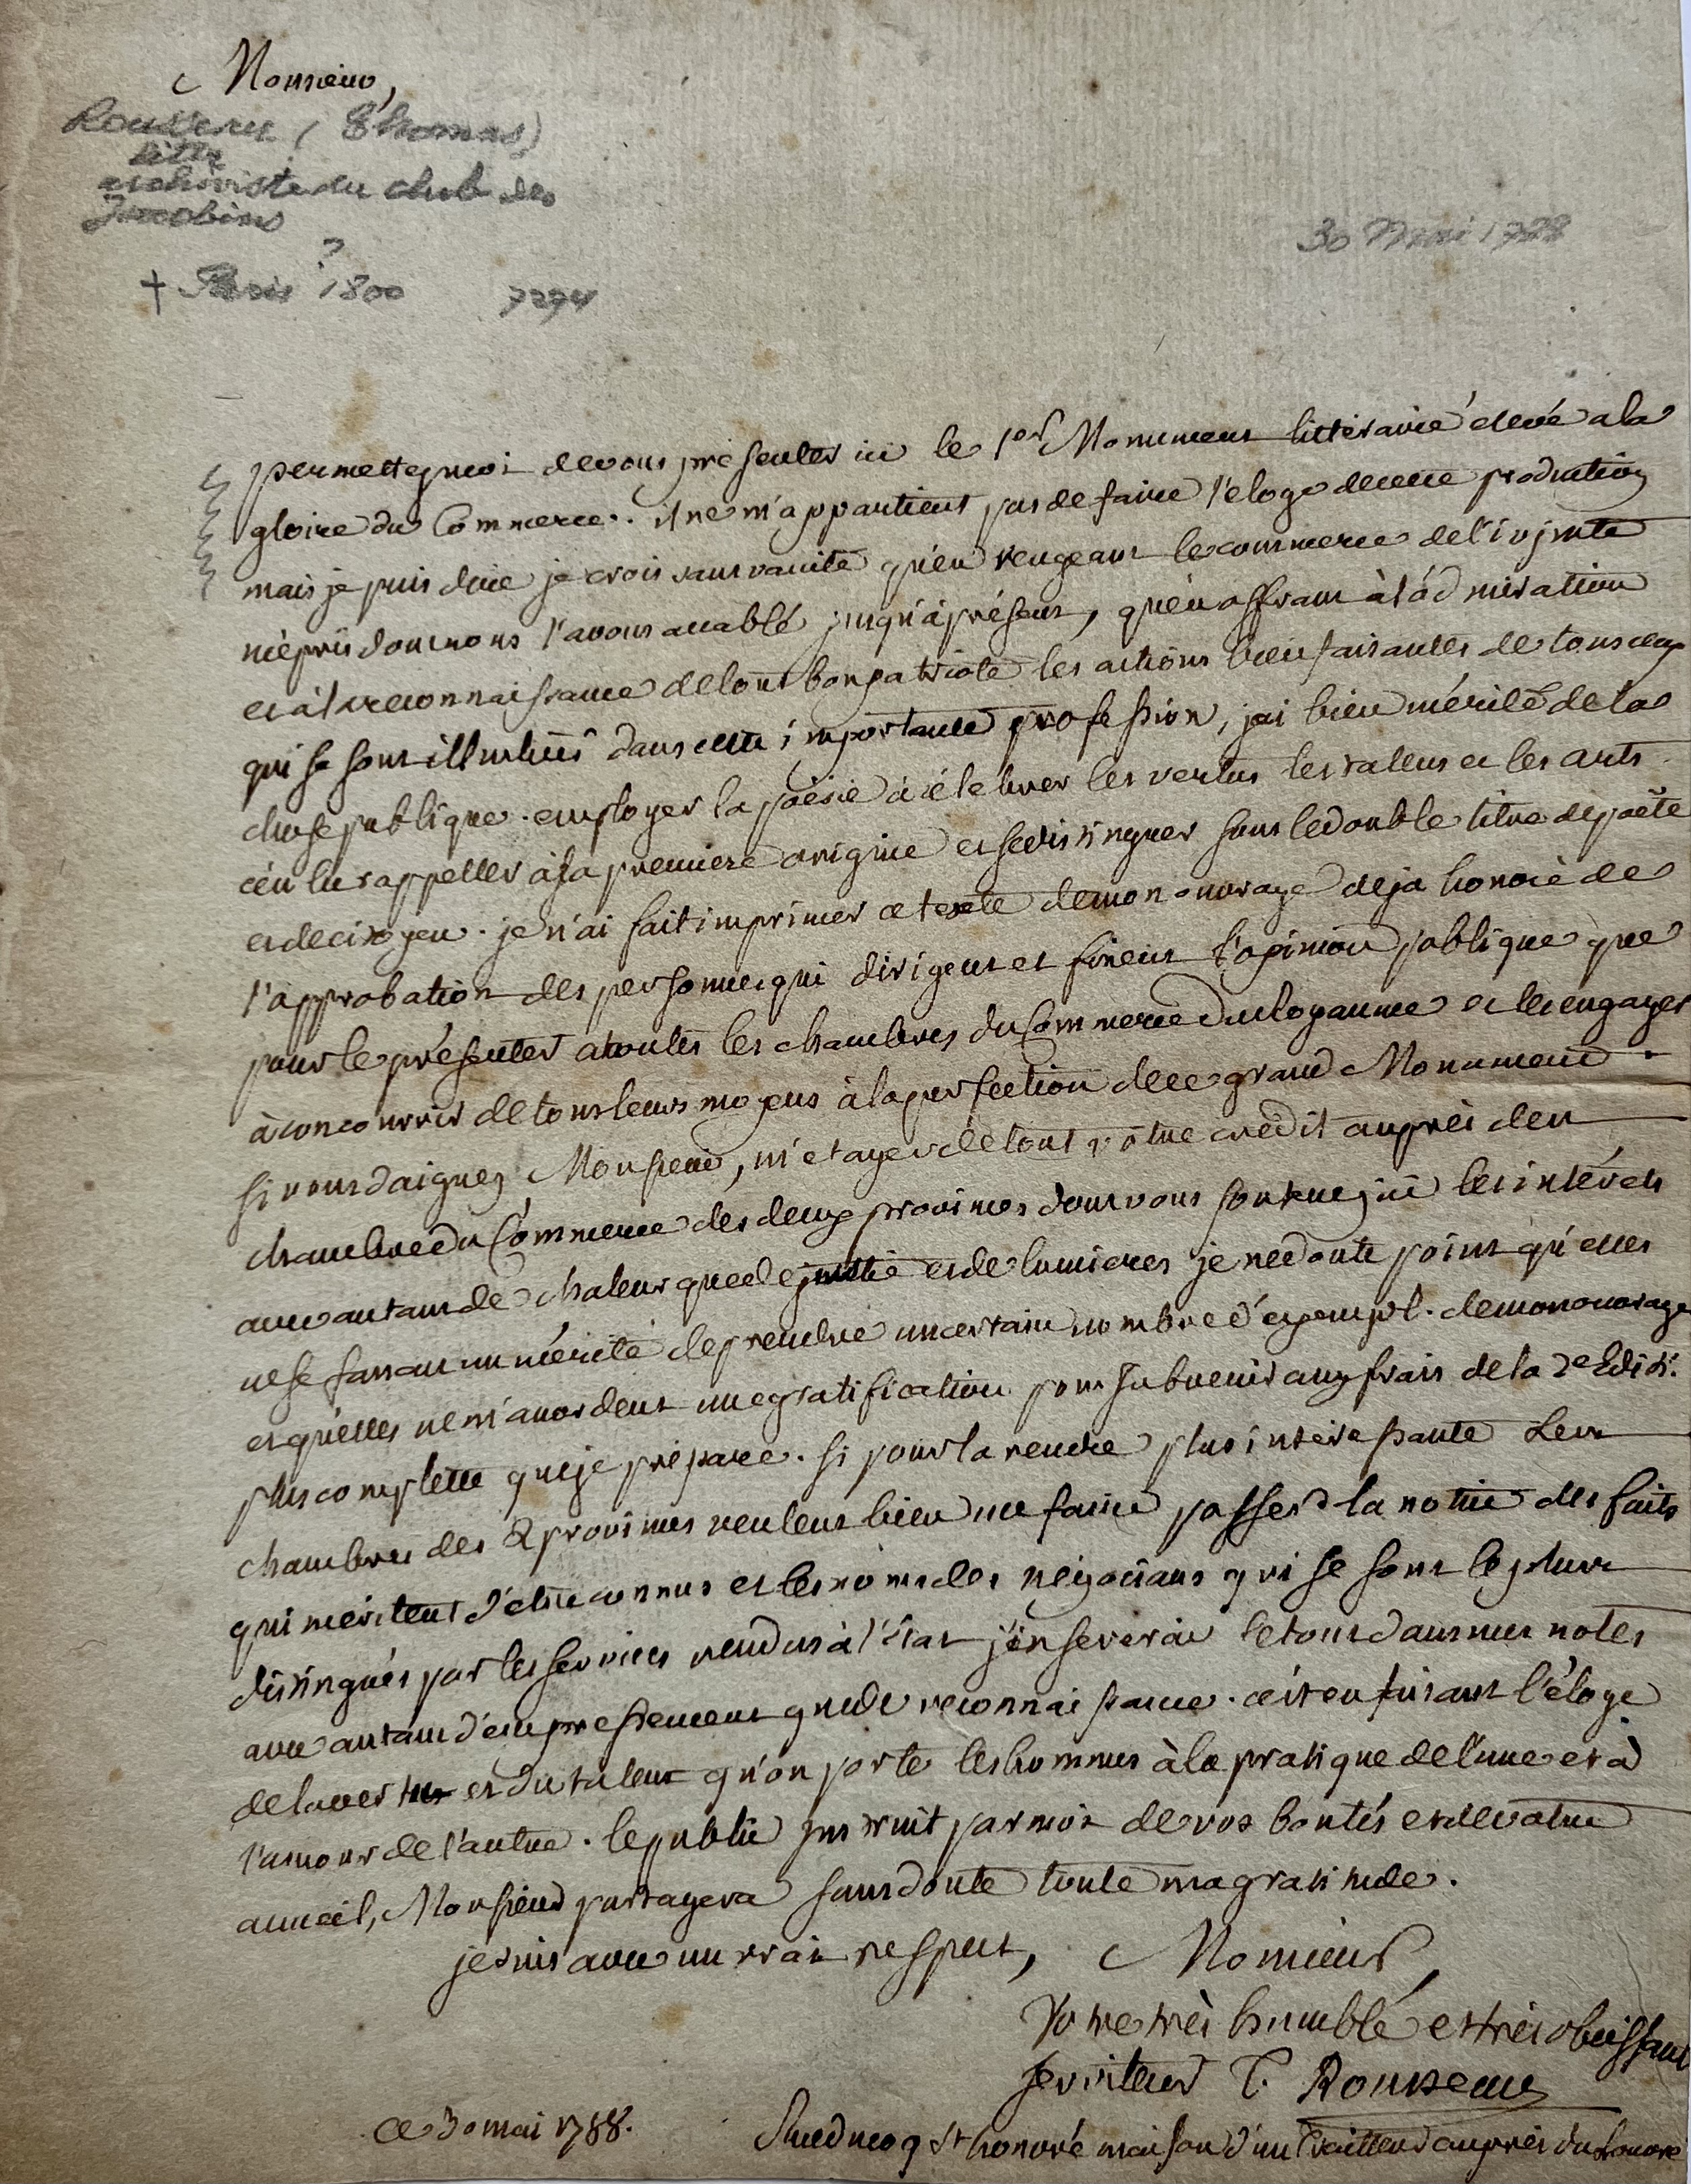 Monsieur,
Rousseau (Thomas)
litt.
archiviste du club des
Jacobins
?
† Paris 1800 7294
30 Mai 1788
permettez moi de vous présenter ici le 1er Monument littéraire élevé a la
gloire du Commerce. il ne m'appartient pas de faire l'eloge de cette production
mais je puis dire je crois sans vanité qu'en vengeant le commerce de l'injuste
mépris dont nous l'avons accablé jusqu'à présent, qu'en offrant à l'admiration
et à la reconnaissance de tout bon patriote les actions bienfaisantes de tous ceux
qui se sont illustrés dans cette importante profession, j'ai bien mérité de la
chose publique. employer la poësie à célebrer les vertus les talens et les arts
c'est la rappeller à sa premiere origine et se distinguer sous le double titre de poëte
et de citoyen. je n'ai fait imprimer ce texte de mon ouvrage deja honoré de
l'approbation des personnes qui dirigent et fixent l'opinion publique que
pour le présenter a toutes les chambres du Commerce du Royaume et les engager
à concourrir de tous leurs moyens à la perfection de ce grand Monument.
si vous daignez Monsieur, m'étayer de tout votre crédit auprès des
chambres du Commerce des deux provinces dont vous soutenez ici les intérêts
avec autant de chaleur que de justice et de lumieres je ne doute point qu'elles
ne se fassent un mérite de prendre un certain nombre d'exempl. de mon ouvrage
et qu'elles ne m'accordent une gratification pour subvenir aux frais de la 2e Edit.
plus complette que je prépare. si pour la rendre plus intéressante les
chambres des 2 provinces veulent bien me faire passer la notice des faits
qui méritent d'etre connus et les noms des négocians qui se sont le plus
distingués par les services rendus à l'état j'insererai le tout dans mes notes
avec autant d'empressement que de reconnaissance. c'est en faisant l'éloge
de la vertu et du talent qu'on porte les hommes à la pratique de l'une et à
l'amour de l'autre. le public instruit par moi de vos bontés et de votre
accueil, Monsieur partagera sans doute toute ma gratitude.
je suis avec un vrai respect, Monsieur,
Votre très humble et très obeissant
serviteur T. Rousseau
Ce 30 mai 1788. Rue du coq St honoré maison d'un Traiteur auprès du Louvre